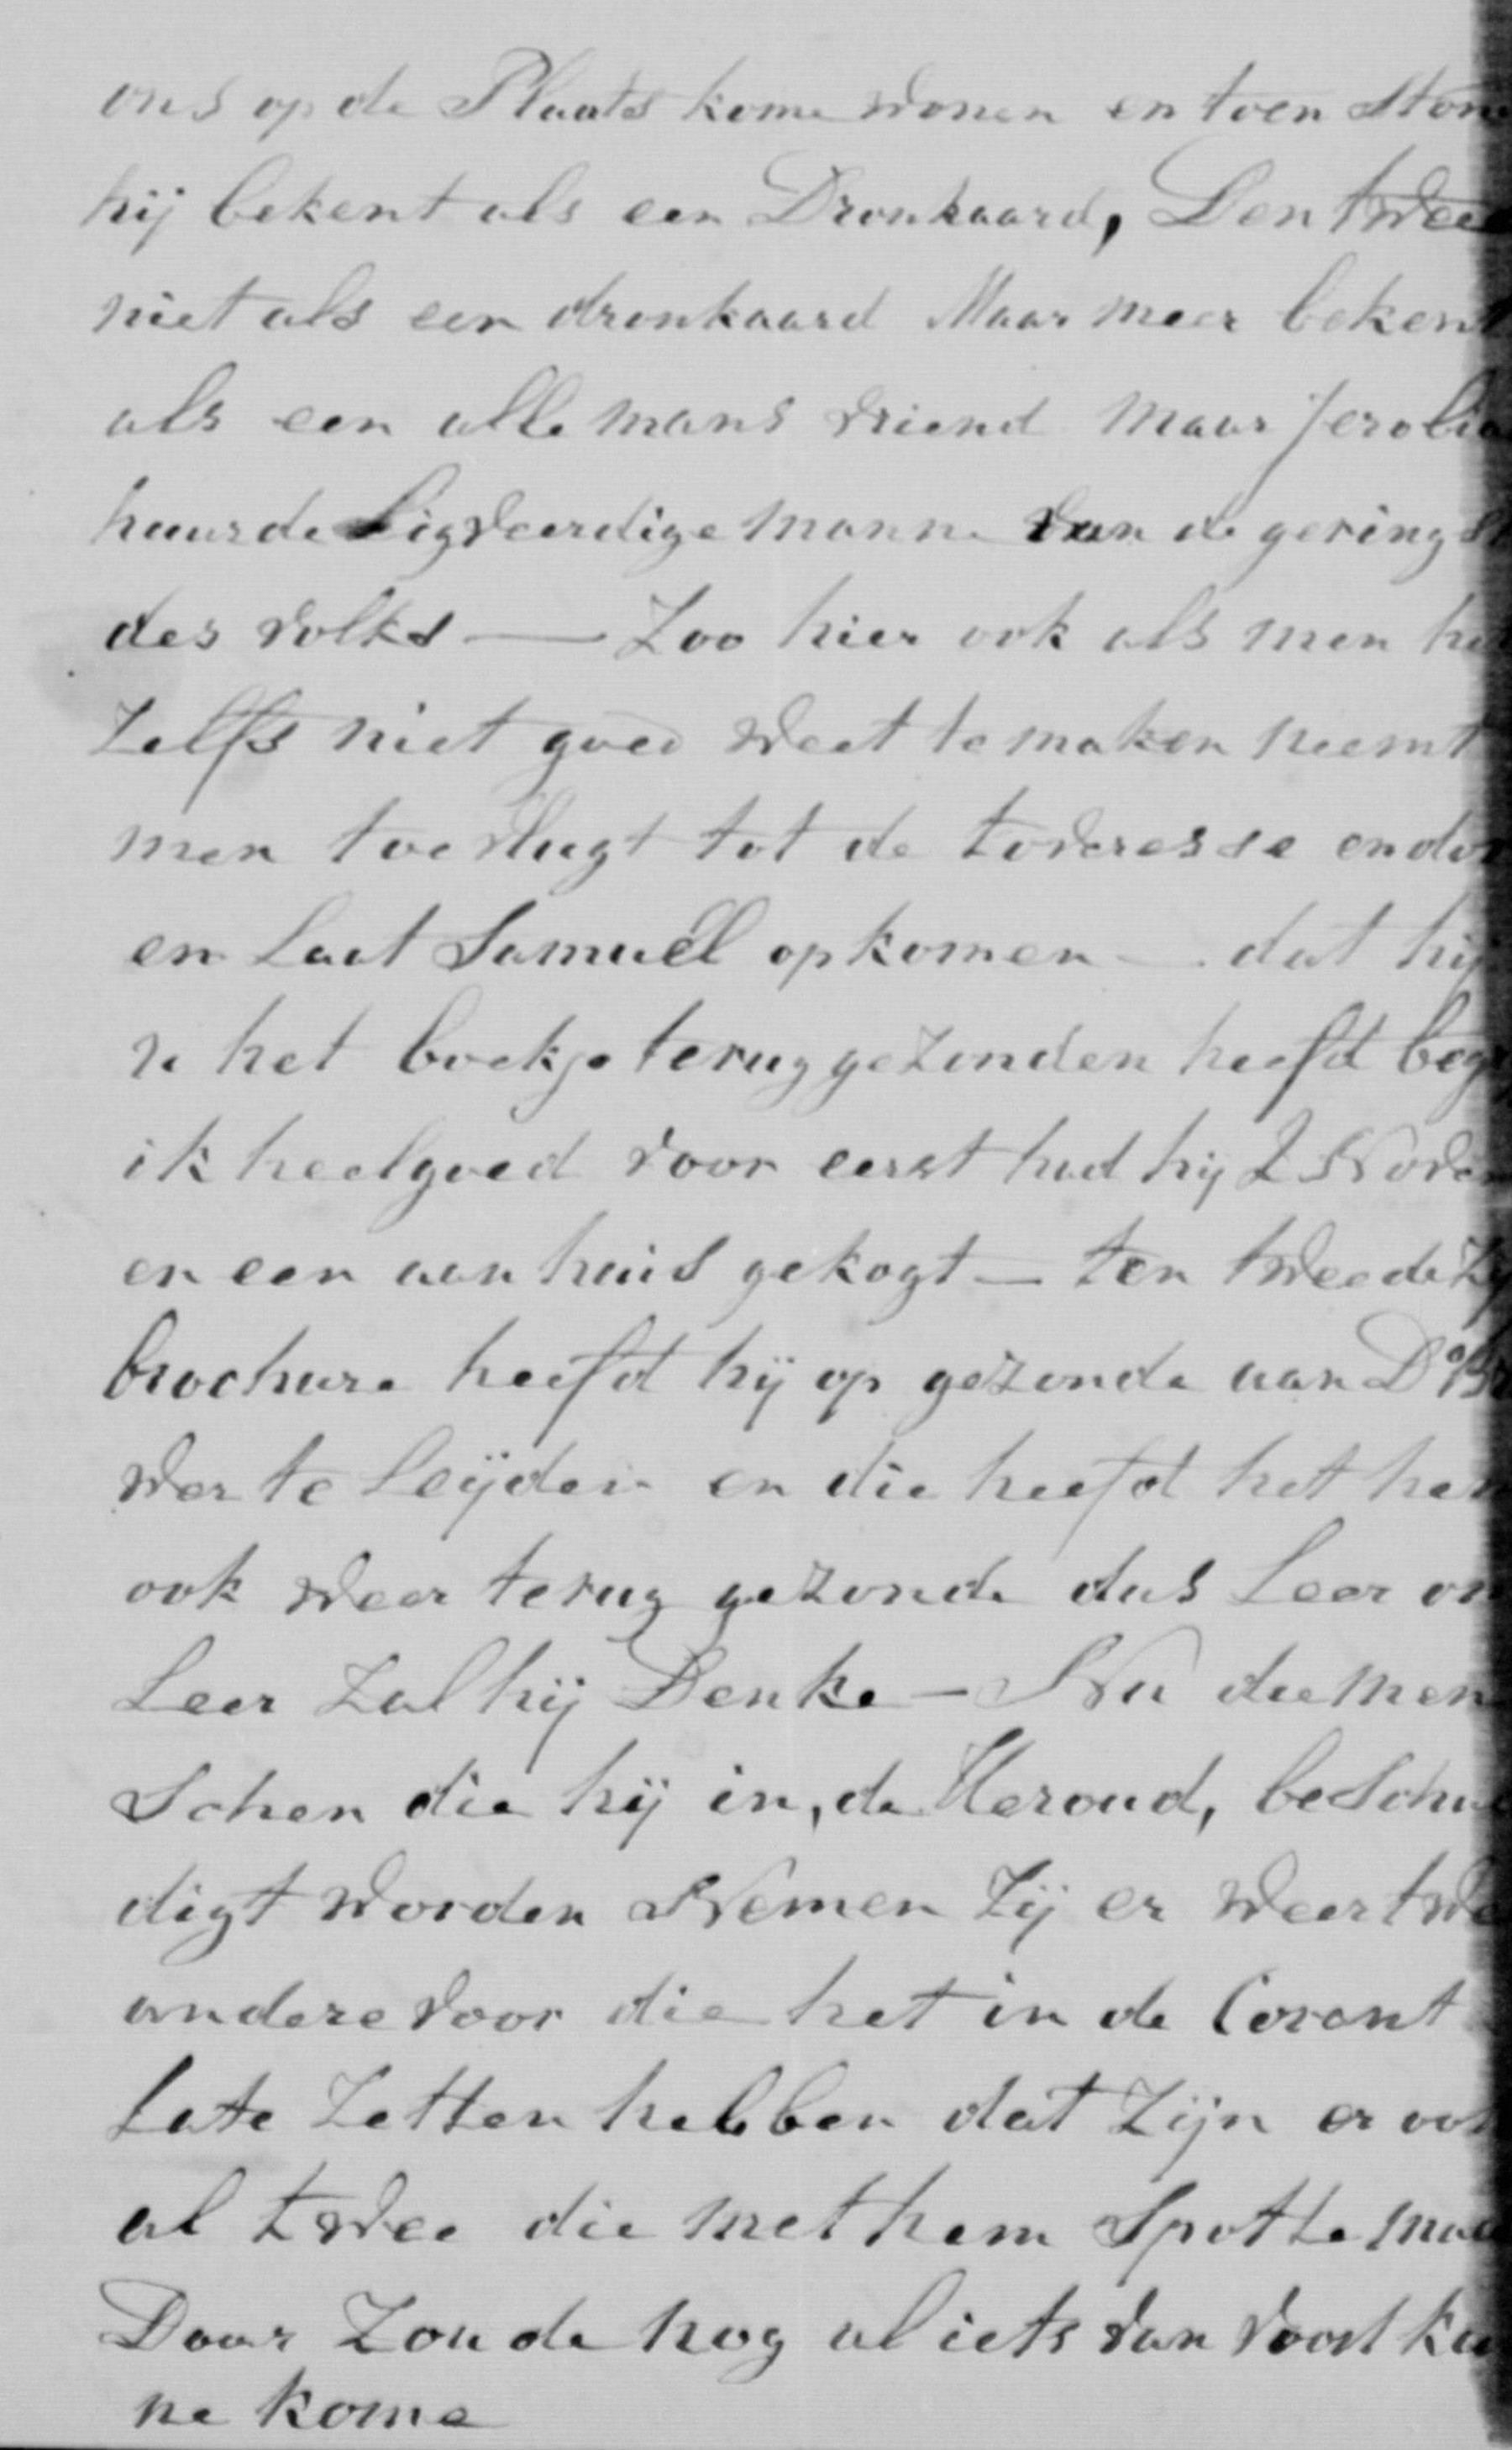 ons op de Plaats kome wonen en toen ston
hij bekent als een Dronkaard, Den twee
niet als een dronkaard Maar meer bekent
als een alle mans vriend maar Jerobia
huurde Ligveerdige manne van de gerings
des volks — Zoo hier ook als men he
Zelfs niet goed weet te maken neemt
men toevlugt tot de toveresse endor
en Laat Samuël opkomen — dat hij
u het boekje terug gezonden heefd beg
ik heel goed voor eerst had hij 2 Nove
en een aan huis gekogt — ten tweede Zij
brochure heefd hij op gezonde aan Ds
wer te Leijden en die heefd het hem
ook weer terug gezonde dus Leer om
Leer Zal hij Denke — Nu die men
Schen die hij in, de Heroud, beschul
digt worden Nemen Zij er weer twe
andere voor die het in de Corant
Late Zetten hebben dat Zijn er ook
al twee die met hem Spotte maa
Daar Zoude nog al iets van voort kun
ne kome